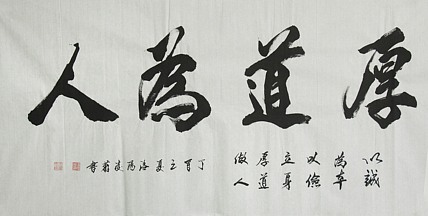 厚道為人
以誠
為本
以儉
立身
厚道
做人
丁酉之夏洛陽書